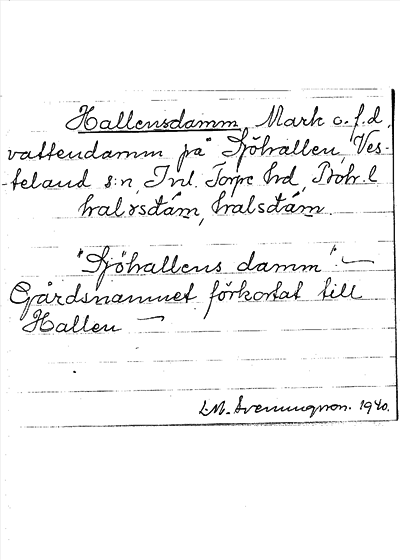 Hallensdamm, Mark o. f.d.
vattendamm på Sjöhallen, Ves-
-teland s:n, Inl. Torpe hd, Boh. l
halnsdam, halsdam.
"Sjöhallens damm". —
Gårdsnamnet förkortat till
Hallen —
L.M. Svenungsson. 1940.